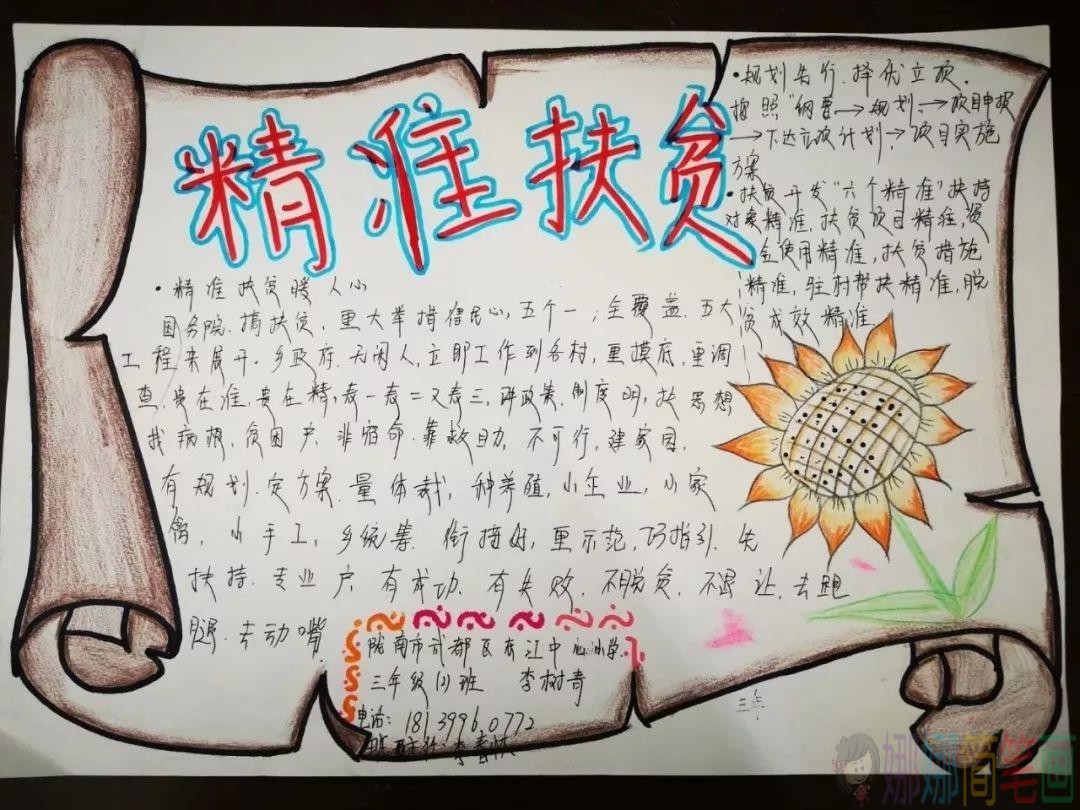 精准扶贫
·规划先行.择优立项.
按照"纲要→规划→项目申报
→下达立项计划→项目实施
方案
·扶贫开发"六个精准"扶持
对象精准,扶贫项目精准,资
金使用精准,扶贫措施
精准,驻村帮扶精准,脱
贫成效精准
·精准扶贫暖人心
国务院.搞扶贫.重大举措得民心,五个一,全覆盖.五大
工程来展开.乡政府.无闲人,立即工作到各村.重摸底,重调
查.贵在准.贵在精,表一表二又表三,讲政策.制度明,扶思想
找病根,贫困户.非宿命.靠救助.不可行,建家园.
有规划.定方案.量体裁,种养殖,小企业,小家
禽,小手工,乡统筹.衔接好,重示范,巧指引.先
扶持.专业户.有成功.有失败.不脱贫.不退让,去跑
腿.去动嘴.
陇南市武都区东江中心小学
三年级(1)班 李树青
电话: 18139960772
三年
娜娜简笔画